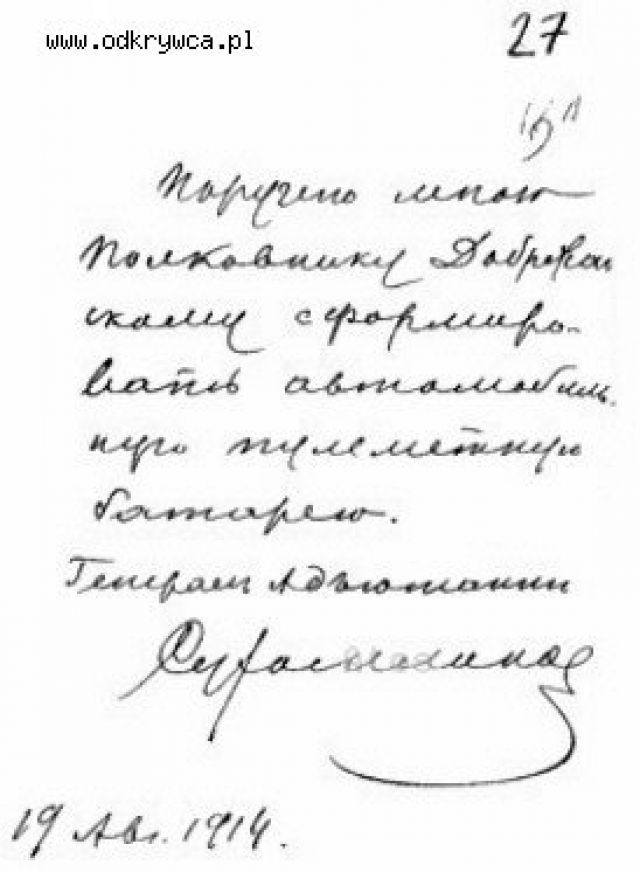 www.odkrywca.pl
27
Поручено мною
Полковнику Добржан
скому сформиро-
вать автомобиль-
ную пулеметную
батарею.
Генерал Адъютант
Сухомлинов
19 Авг. 1914.